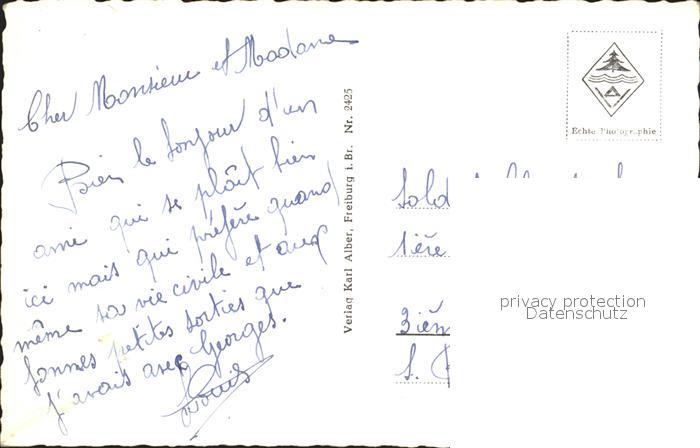 Cher Monsieur et Madame
Bien le bonjour d'un
ami qui se plaît bien
ici mais qui préfère quand
même sa vie civile et aux
bonnes petites sorties que
j'avais avec Georges.
Louis
Verlag Karl Alber, Freiburg i. Br. Nr. 2425
Echte Photographie
Sold
1ière
3ièm
S.
privacy protection
Datenschutz